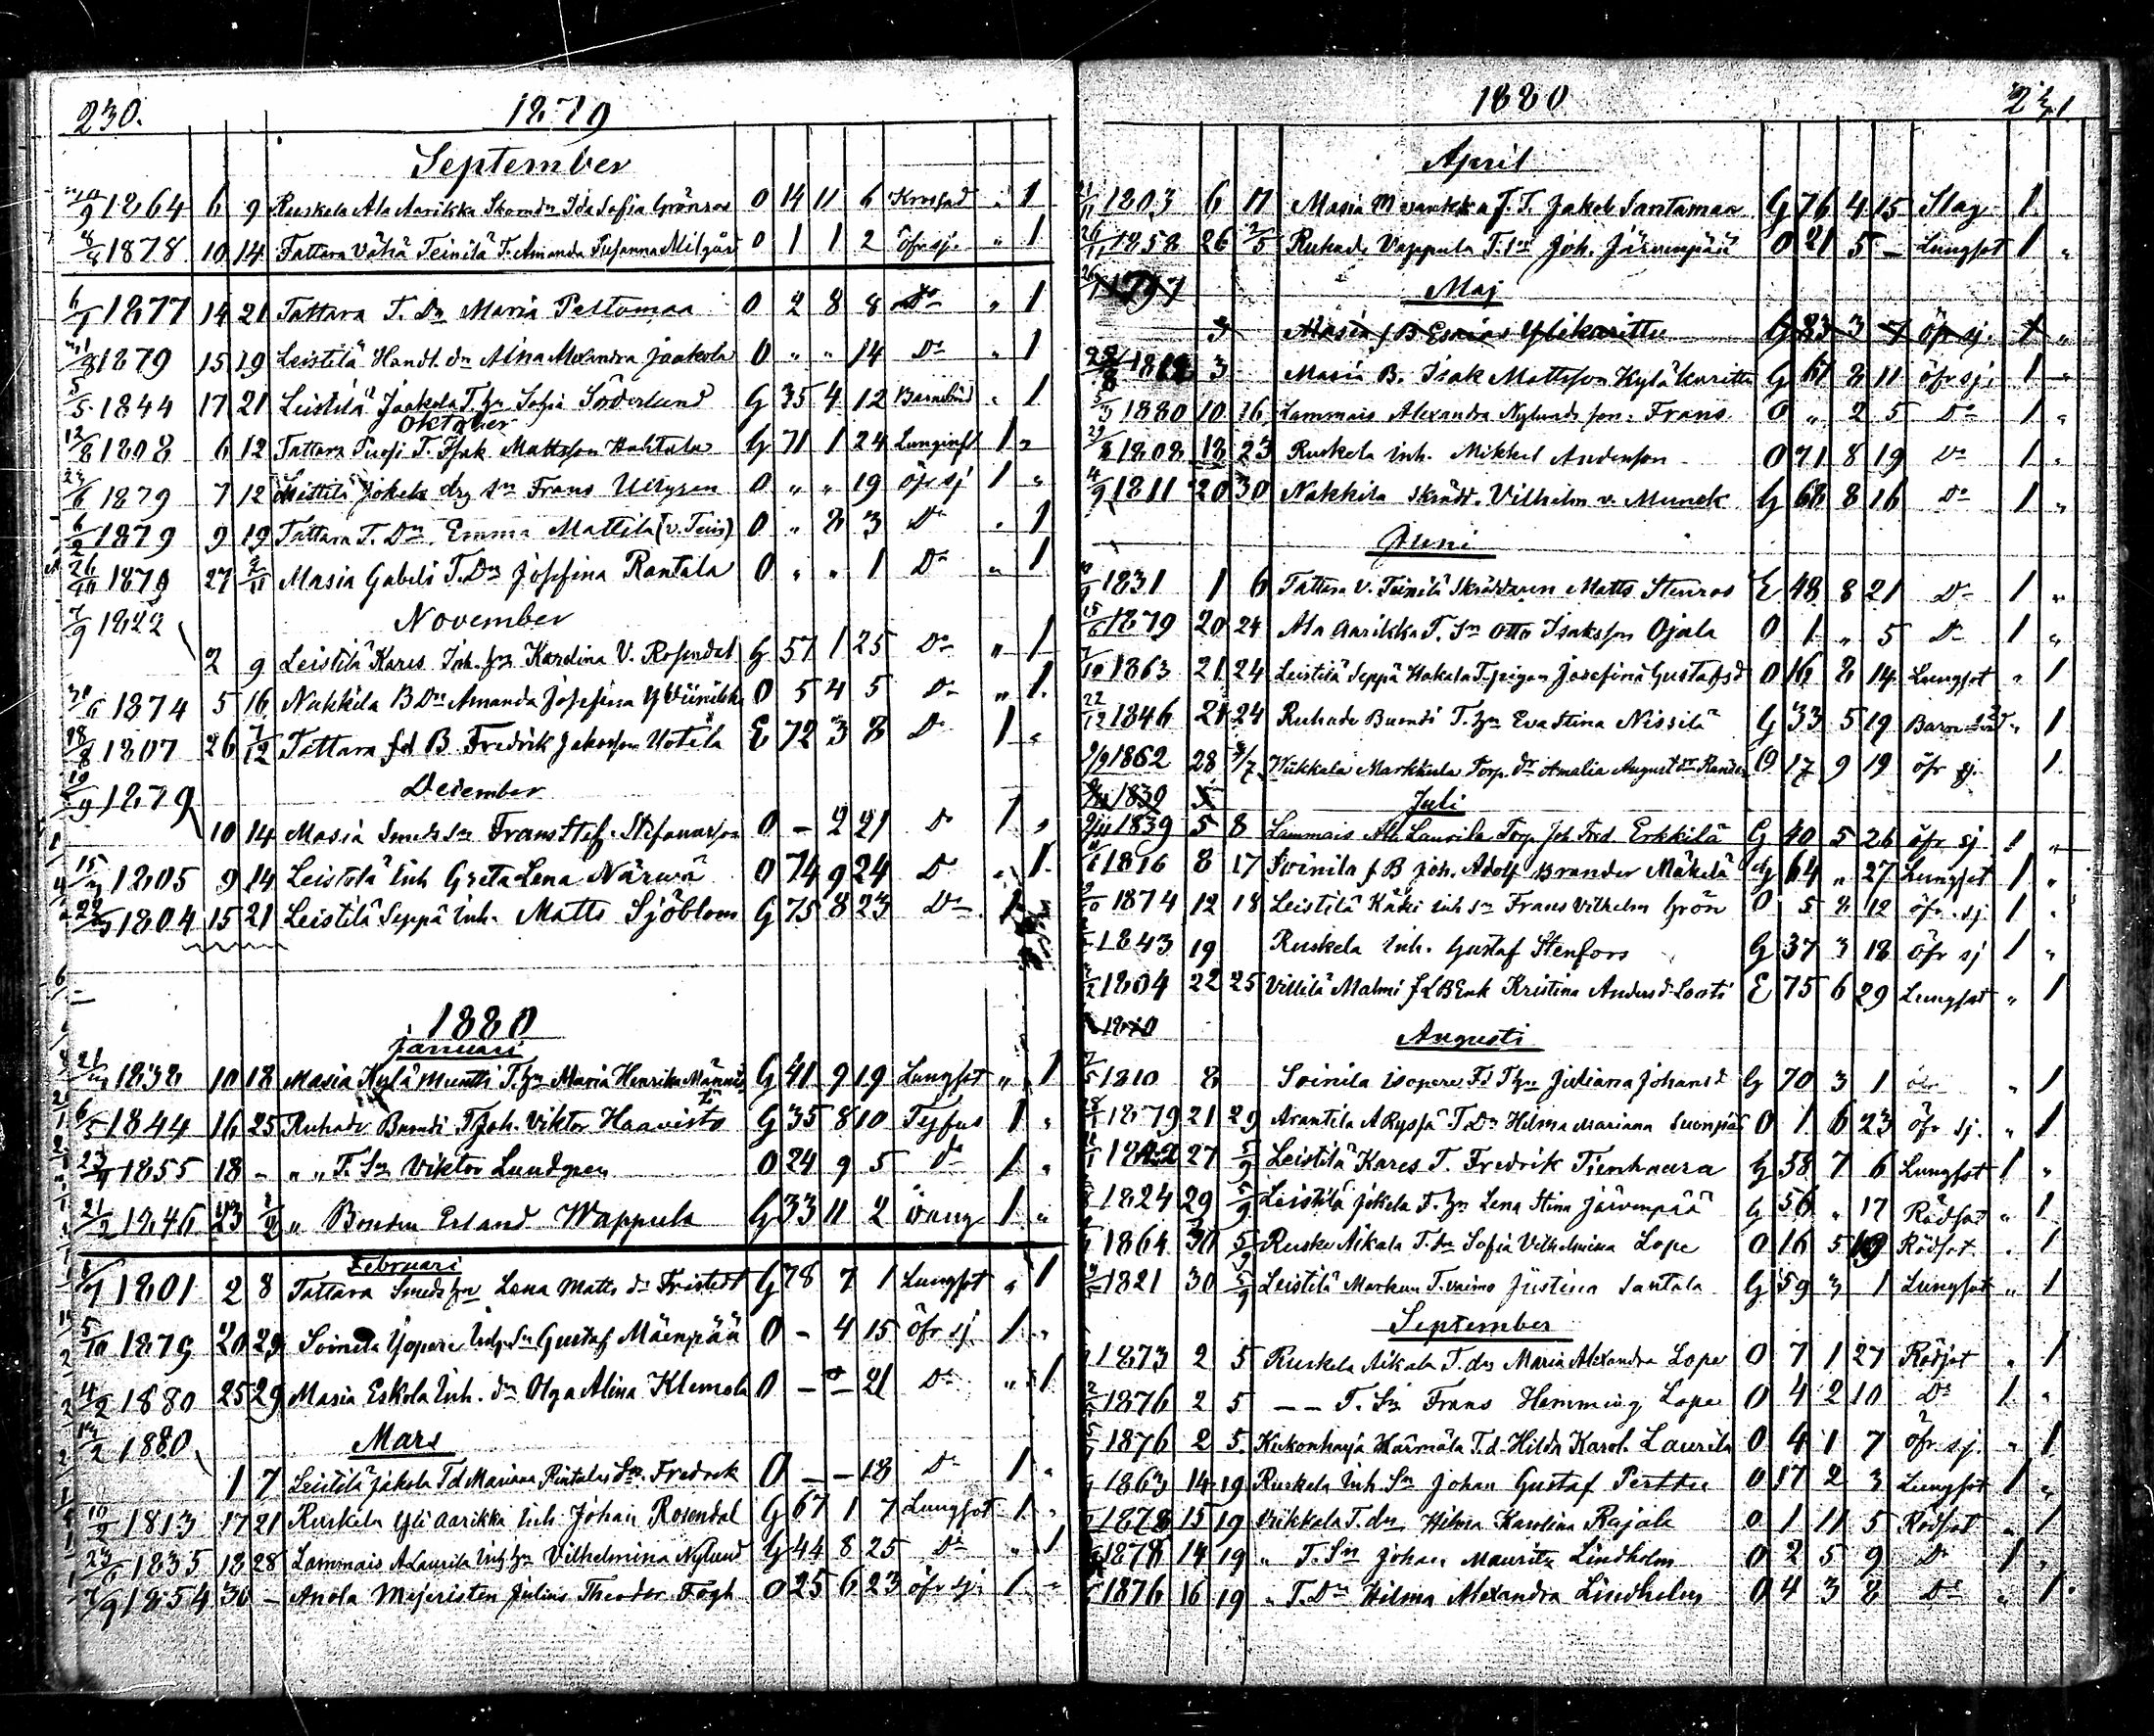 230. 1879
September
1864 6 9 Ruskela Ala Aarikka Skomdn Ida Sofia Grönroos 0 14 11 6 " 1
1878 10 14 Tattara Vähä Teinilä T. Amanda Susanna 0 1 1 2 Öfr sj. " 1
6/1 1877 14 21 Tattara T. Dn Maria Peltomaa 0 2 8 8 Do " 1
1879 15 19 Leistilä Handl. dn Aina Alexandra Jaakola 0 " " 14 Do " 1
5/5 1844 17 21 Leistilä Jaakola T. hn Sofia Söderlund G 35 4 12 Barnsbörd " 1
Oktober
12/8 1808 6 12 Tattara T. Isak Mattsson Huhtala G 71 1 24 Lunginfl 1 "
1879 7 12 Jokela drg sn Frans 0 " " 19 öfr sj 1 "
6/2 1879 9 19 Tattara T. Dn Emma Mattila (v. Tein) 0 " 8 3 Do " 1
26/10 1879 27 2/11 Masia Gabeli T. Dn Josefina Rantala 0 " " 1 Do " 1
7/9 1822 November
2 9 Leistilä Kares Inh. hn Karolina V. Rosendal G 57 1 25 Do " 1
1874 5 16 Nakkila B Dn Amanda Josefina 0 5 4 5 Do " 1.
18/8 1807 26 7/12 Tattara fd B. Fredrik Jakosson Uotila E 72 3 8 Do 1 "
19/9 1879 December
10 14 Masia Smeds sn Frans Stef. Stefansson 0 - 2 21 Do 1 "
15/2 1805 9 14 Leistilä Inh Greta Lena Närvä 0 74 9 24 Do " 1.
22/3 1804 15 21 Leistilä Seppä Inh. Matts Sjöblom G 75 8 23 Do 1
1880
Januari
1838 10 18 Masia Kylä Muntti T. hn Maria Henrika G 41 9 19 Lungsot " 1
6/5 1844 16 25 Ruhade Buondi T Joh. Viktor Haavisto G 35 8 10 Tyfus 1 "
23/4 1855 18 - " " T. Sn Viktor Lundgren 0 24 9 5 Do 1 "
21/2 1846 23 1/2 " Bonden Erland Wappula G 33 11 2 1 "
Februari
1/7 1801 2 8 Tattara Smeds hn Lena Matts dr Fristedt G 78 7 1 Lungsot " 1
5/10 1879 20 29 Soinila Yopere Inh. Sn Gustaf Mäenpää 0 - 4 15 Öfr sj. 1 "
4/2 1880 25 29 Masia Eskola Inh. dn Olga Alina Klemola 0 - - 21 Do " 1
1880 Mars
1 7 Leistilä Jakola Td Mariana Rintalas Sn Fredrik 0 - - 18 Do 1 "
10/2 1813 17 21 Ruskela Yli Aarikka Inh. Johan Rosendal G 67 1 7 Lungsot 1 "
23/6 1835 18 28 Lammais A Laurila Inh hn Vilhelmina Nylund G 44 8 25 Do " 1
7/9 1854 30 - Anola Mejeristen Julius Theodor Fogh 0 25 6 23 öfr sj. 1 "
1880 231
April
21/11 1803 6 17 Masia M J. T. Jakob Santamaa G 76 4 15 Slag 1
26/11 1858 26 2/5 Ruhade Vappula T. sn Joh. Järvenpää 0 21 5 - Lungsot 1 "
1797 Maj
3 Masia f B Esaias Ylikarittu G 83 3 7 Öfr sj. 1 "
3 Masia B. Isak Mattsson Kyläkarittu G 61 8 11 öfr sj. 1 "
5/3 1880 10 16 Lammais Alexandra Nylunds son: Frans 0 " 2 5 Do 1 "
1808 18 23 Ruskela Inh. Mikkel Andersson 0 71 8 19 Do 1 "
4/9 1811 20 30 Nakkila Skrädd. Vilhelm v. Munck G 68 8 16 Do 1 "
Juni
1831 1 6 Tattara V. Teinilä Skräddaren Matts Stenroos E 48 8 21 Do 1 "
15/6 1879 20 24 Ala Aarikka T. Sn Otto Isaksson Ojala 0 1 " 5 Do 1 "
7/10 1863 21 24 Leistilä Seppä Hakala T. pigan Josefina Gustafsd 0 16 8 14 Lungsot " 1
22/12 1846 21 24 Ruhade Buondi T. hn Eva Stina Nissilä G 33 5 19 Barnsbörd " 1
9/9 1862 28 4/7 Viikkala Markkula Torp. dr Amalia Augustdr 0 17 9 19 öfr sj. 1
1839 5 Juli
1839 5 8 Lammais Ala Laurila Torp. Joh Fred. Erkkilä G 40 5 26 öfr sj 1 "
1816 8 17 Soinila f B Joh. Adolf Brander Mäkelä G 64 " 27 Lungsot 1 "
1874 12 18 Leistilä Käki inh sn Frans Vilhelm Grön 0 5 8 12 öfr. sj 1 "
1843 19 Ruskela Inh. Gustaf Stenfors G 37 3 18 öfr sj 1 "
1804 22 25 Villilä Malmi Kristina Andersd. E 75 6 29 Lungsot " 1
1810 Augusti
7/5 1810 8 Soinila Isopere Fd T hn Juliana Johansd G 70 3 1 " 1
1879 21 29 Arantila A Ryssä T. Dn Helma Mariana 0 1 6 23 Öfr sj. " 1
1822 27 5/9 Leistilä Kares T. Fredrik Tienhaara G 58 7 6 Lungsot 1 "
1824 29 5/9 Leistilä Jokela T. hn Lena Stina Järvenpää G 56 " 17 Rödsot " 1
1864 30 5/9 Ruske Aikala T. dn Sofia Vilhelmina Lope 0 16 5 Rödsot " 1
1821 30 5/9 Leistilä Markun T. vaimo Justina Santala G 59 3 1 Lungsot " 1
September
1873 2 5 Ruskela Aikala T. dn Maria Alexandra Lope 0 7 1 27 Rödsot " 1
1876 2 5 - - T. Sn Frans Hemming Lope 0 4 2 10 Do 1 "
1876 2 5 Kukonharja Härmälä T. d. Hilda Karol. Laurila 0 4 1 7 Öfr. sj. " 1
1863 14 19 Ruskela Inh. Sn Johan Gustaf Perttu 0 17 2 3 Lungsot 1 "
1878 15 19 Viikkala T. dn Hilma Karolina Rajala 0 1 11 5 Rödsot " 1
1878 14 19 " T. Sn Johan Mauritz Lindholm 0 2 5 9 Do 1 "
1876 16 19 " T. Dn Hilma Alexandra Lindholm 0 4 3 8 Do " 1